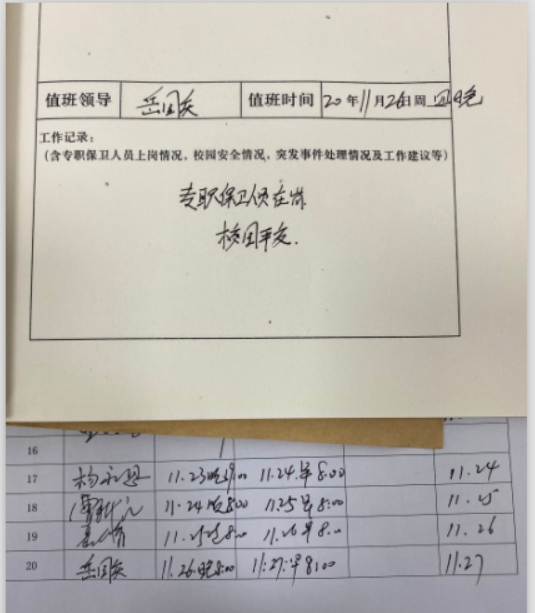 值班领导 岳国庆 值班时间 20年11月26日周四晚
工作记录：
（含专职保卫人员上岗情况，校园安全情况，突发事件处理情况及工作建议等）
专职保卫人员在岗
校园平安.
16
17 杨 11.23晚8:00 11.24.早8:00 11.24
18 11.24晚8:00 11.25早8:00 11.25
19 11.25晚8:00 11.26早8:00 11.26
20 岳国庆 11.26晚8:00 11.27.早8:00 11.27